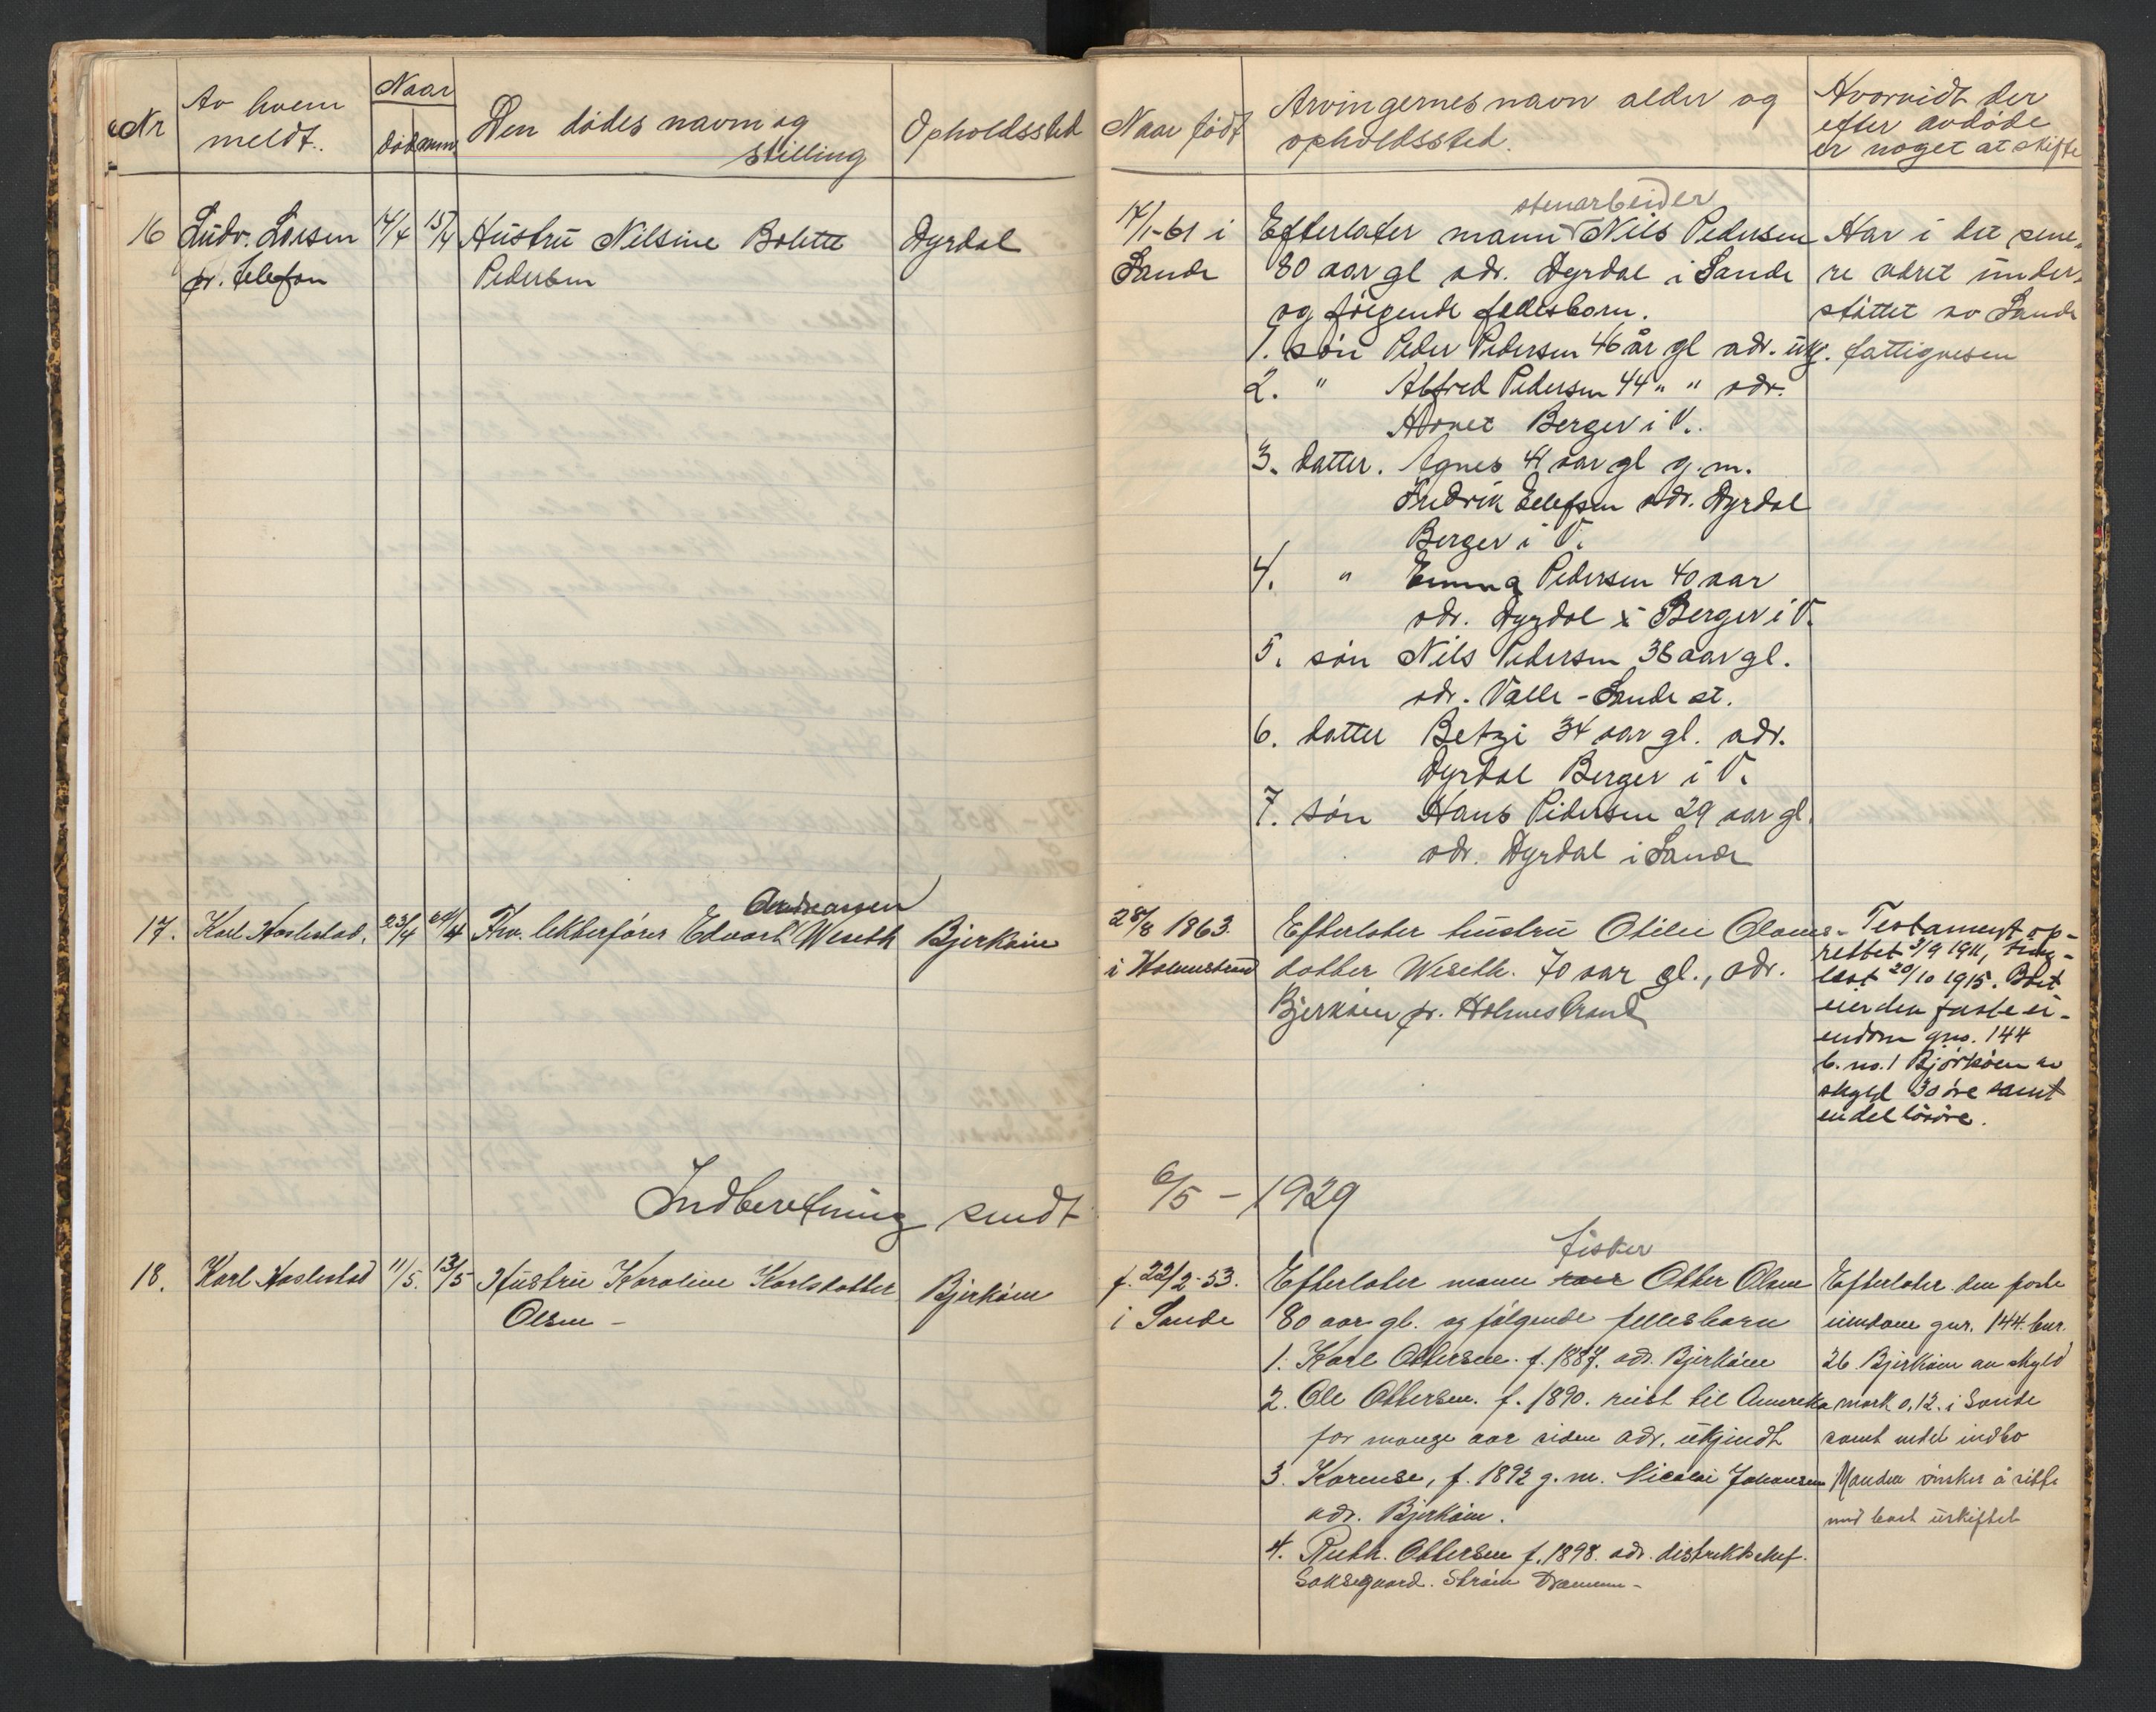 Nr
Av hvem
meldt.
Naar
död
Den dödes navn og
stilling
Opholdssted
Naar födt
Arvingernes navn alder og
opholdssted.
Hvorvidt der
efter avdöde
er noget at skifte
16
Ludv. Larsen
pr. telefon
14/4
15/4
Hustru Nilsine Bolette
Pedersen
Dyrdal
17/1-61 i
Sande
stenarbeider
Efterlater mann Nils Pedersen
80 aar gl adr. Dyrdal i Sande
og fölgende fellesbarn.
1. sön Peder Pedersen 46 år gl adr. ukj.
2. " Alfred Pedersen 44 " " adr.
Berger i V.
3. datter. Agnes 41 aar gl g.m.
Fredrik Ellefsen adr. Dyrdal
Berger i V.
4. " Emma Pedersen 40 aar
adr. Dyrdal x Berger i V.
5. sön Nils Pedersen 36 aar gl.
adr. Valle - Sande st.
6. datter Betzi 34 aar gl. adr.
Dyrdal Berger i V.
7. sön Hans Pedersen 29 aar gl.
adr. Dyrdal i Sande
Har i det sene-
re været under-
støttet av Sande
fattigvesen
17.
Karl Haslestad.
23/4
24/4
Andreassen
Fhv. lekterförer Edvart Weseth
Bjerköien
28/8 1863.
i Holmestrand
Efterlater hustru Otilie Olaus-
datter Weseth. 70 aar gl., adr.
Bjerköien pr. Holmestrand
Testament op-
rettet 3/9 1911, ting-
læst 20/10 1915. Boet
eier den faste ei-
endom gno. 144
b.no. 1 Bjørkøen av
skyld 30 øre samt
endel lösöre.
Indberetning sendt
6/5 - 1929
18.
Karl Haslestad
11/5.
13/5
Hustru Karoline Karlsdatter
Olsen -
Bjerköien
f. 22/2-53.
i Sande
fisker
Efterlater mann Otter Olsen
80 aar gl. og fölgende fellesbarn
1. Karl Ottersen. f. 1887. adr. Bjerköien
2. Ole Ottersen. f. 1890. reist til Amerika
for mange aar siden adr. ukjendt
3. Karense, f. 1893 g.m. Nicolai Johansen
adr. Bjerköien.
4. Ruth. Ottersen f. 1898. adr. distriktschef.
Saksegaard. Ström Drammen -
Efterlater den faste
eiendom gnr. 144. bnr.
26. Bjerköien av skyld
mark 0,12. i Sande
samt endel indbo
Manden önsker å sitte
med boet uskiftet